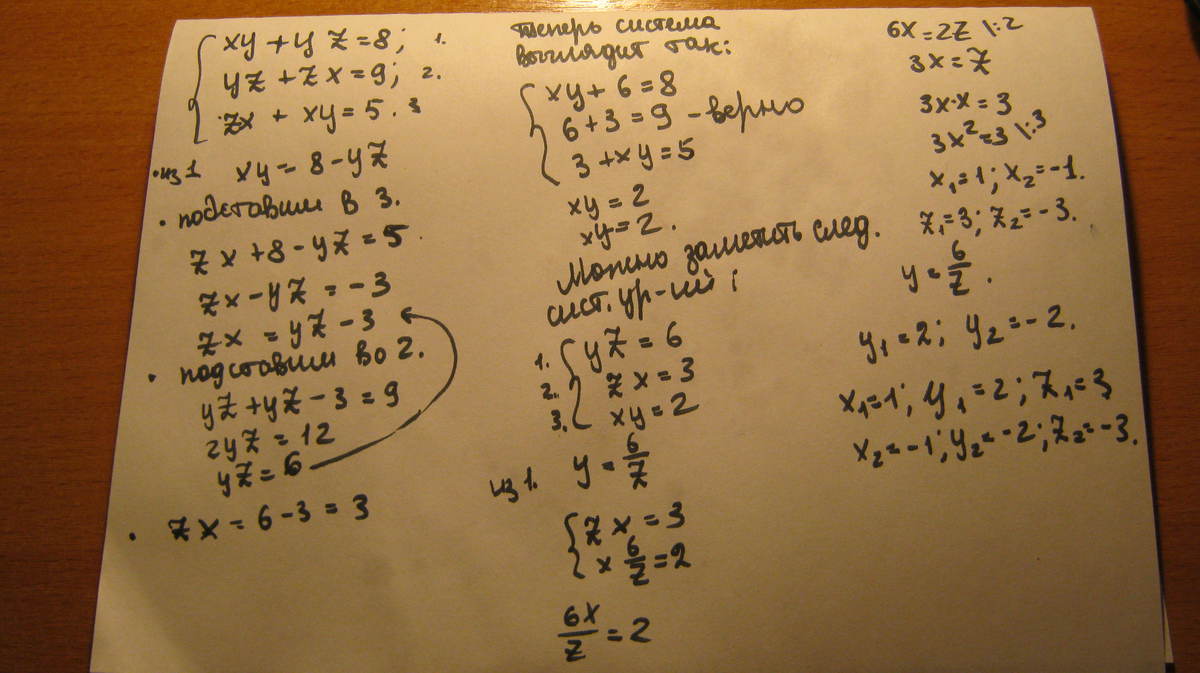 xy + yz = 8; 1.
yz + zx = 9; 2.
zx + xy = 5. 3
• из 1 xy = 8 - yz
• подставим в 3.
zx + 8 - yz = 5.
zx - yz = -3
zx = yz - 3
• подставим во 2.
yz + yz - 3 = 9
2yz = 12
yz = 6
• zx = 6 - 3 = 3
теперь система
выглядит так:
xy + 6 = 8
6 + 3 = 9 - верно
3 + xy = 5
xy = 2
xy = 2.
Можно заметить след.
сист. ур-ний:
1. yz = 6
2. zx = 3
3. xy = 2
из 1. y = 6/z
zx = 3
x 6/z = 2
6x/z = 2
6x = 2z \:2
3x = z
3x·x = 3
3x² = 3 \:3
x₁ = 1; x₂ = -1.
z₁ = 3; z₂ = -3.
y = 6/z.
y₁ = 2; y₂ = -2.
x₁ = 1; y₁ = 2; z₁ = 3
x₂ = -1; y₂ = -2; z₂ = -3.